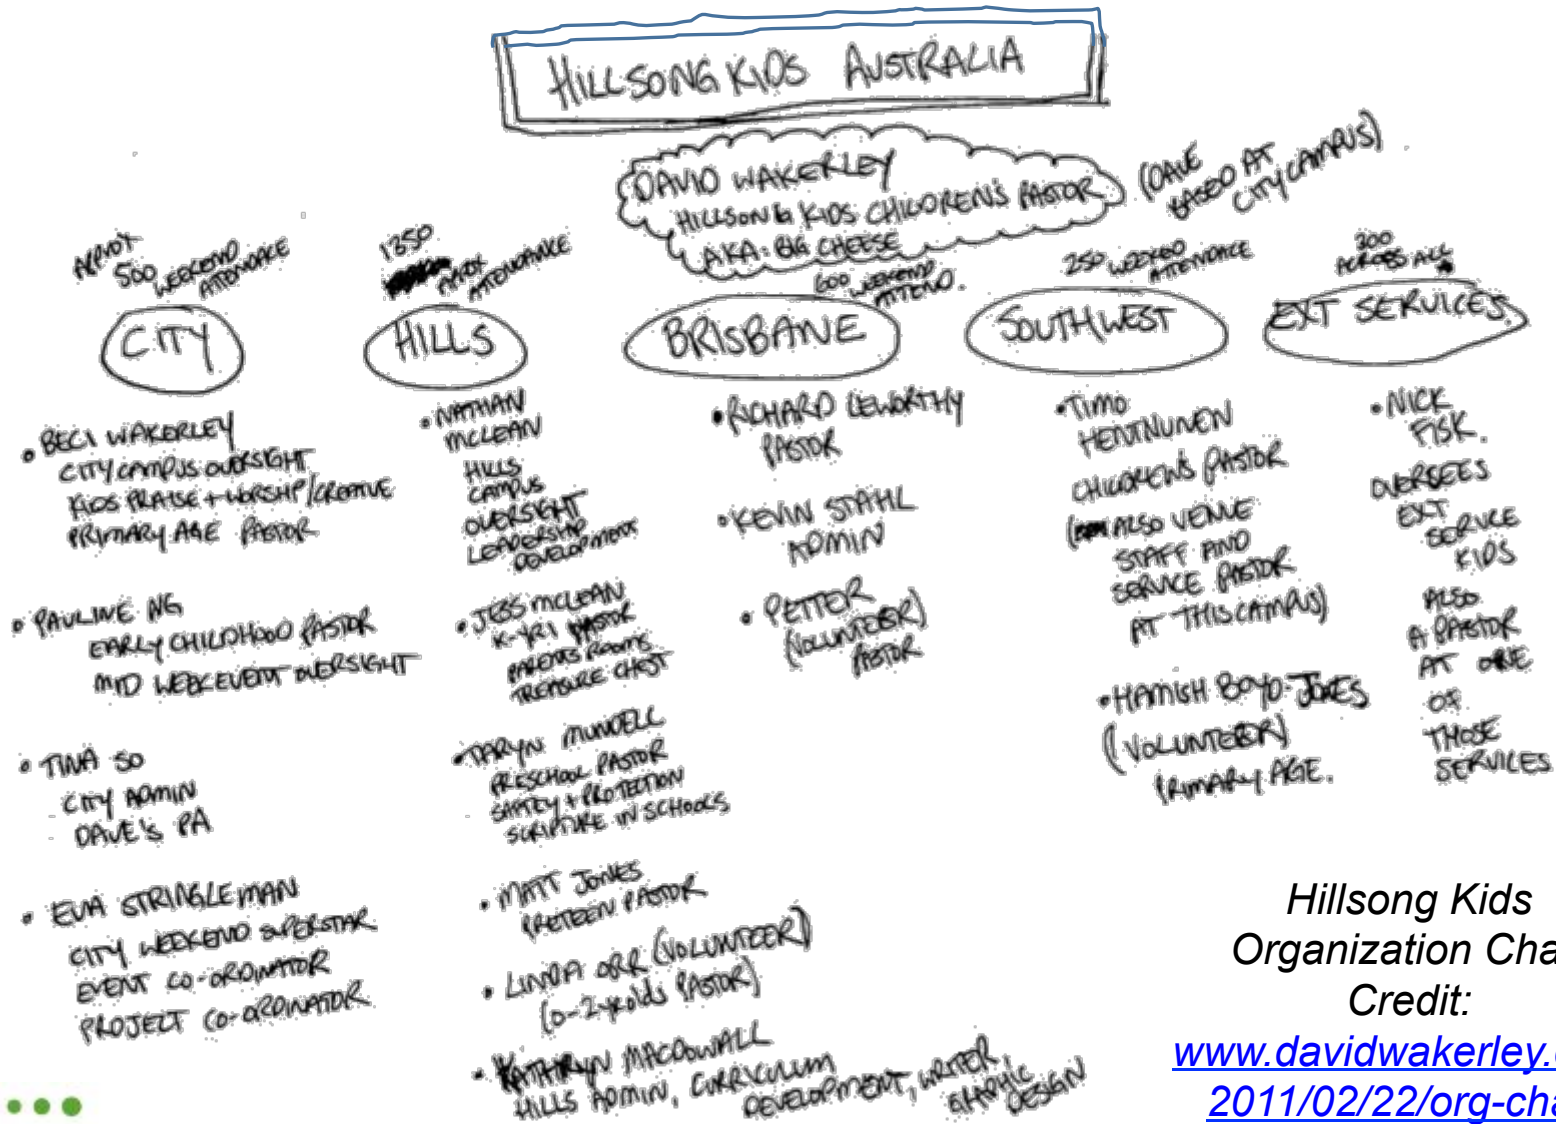 HILLSONG KIDS AUSTRALIA
DAVID WAKERLEY
HILLSONG KIDS CHILDREN'S PASTOR
AKA: BIG CHEESE
(DAVE
BASED AT
CITY CAMPUS)
APPROX
500 WEEKEND
ATTENDANCE
CITY
• BECI WAKERLEY
CITY CAMPUS OVERSIGHT
KIDS PRAISE + WORSHIP/CREATIVE
PRIMARY AGE PASTOR
• PAULINE NG
EARLY CHILDHOOD PASTOR
MID WEEK EVENT OVERSIGHT
• TINA SO
CITY ADMIN
DAVE'S PA
• EVA STRINGLEMAN
CITY WEEKEND SUPERSTAR
EVENT CO-ORDINATOR
PROJECT CO-ORDINATOR
1350
APPROX
ATTENDANCE
HILLS
• NATHAN
MCLEAN
HILLS
CAMPUS
OVERSIGHT
LEADERSHIP
DEVELOPMENT
• JESS MCLEAN
K-YR1 PASTOR
PARENTS ROOMS
TREASURE CHEST
• TARYN MUNDELL
PRESCHOOL PASTOR
SAFTEY + PROTECTION
SCRIPTURE IN SCHOOLS
• MATT JONES
PRETEEN PASTOR
• LINDA ORR (VOLUNTEER)
(0-2 yrolds PASTOR)
• KATHRYN MACDOWALL
HILLS ADMIN, CURRICULUM
DEVELOPMENT, WRITER,
GRAPHIC
DESIGN
600 WEEKEND
ATTEND.
BRISBANE
• RICHARD LEWORTHY
PASTOR
• KEVIN STAHL
ADMIN
• PETTER
(VOLUNTEER)
PASTOR
250 WEEKEND
ATTENDANCE
SOUTHWEST
• TIMO
HENTNUNEN
CHILDREN'S PASTOR
( ALSO VENUE
STAFF AND
SERVICE PASTOR
AT THIS CAMPUS)
• HAMISH BOYD-JONES
(VOLUNTEER)
PRIMARY AGE.
ACROSS ALL
EXT SERVICES
• NICK
FISK.
OVERSEES
EXT
SERVICE
KIDS
ALSO
A PASTOR
AT ONE
OF
THOSE
SERVICES
Hillsong Kids
Organization Cha
Credit:
www.davidwakerley.
2011/02/22/org-cha